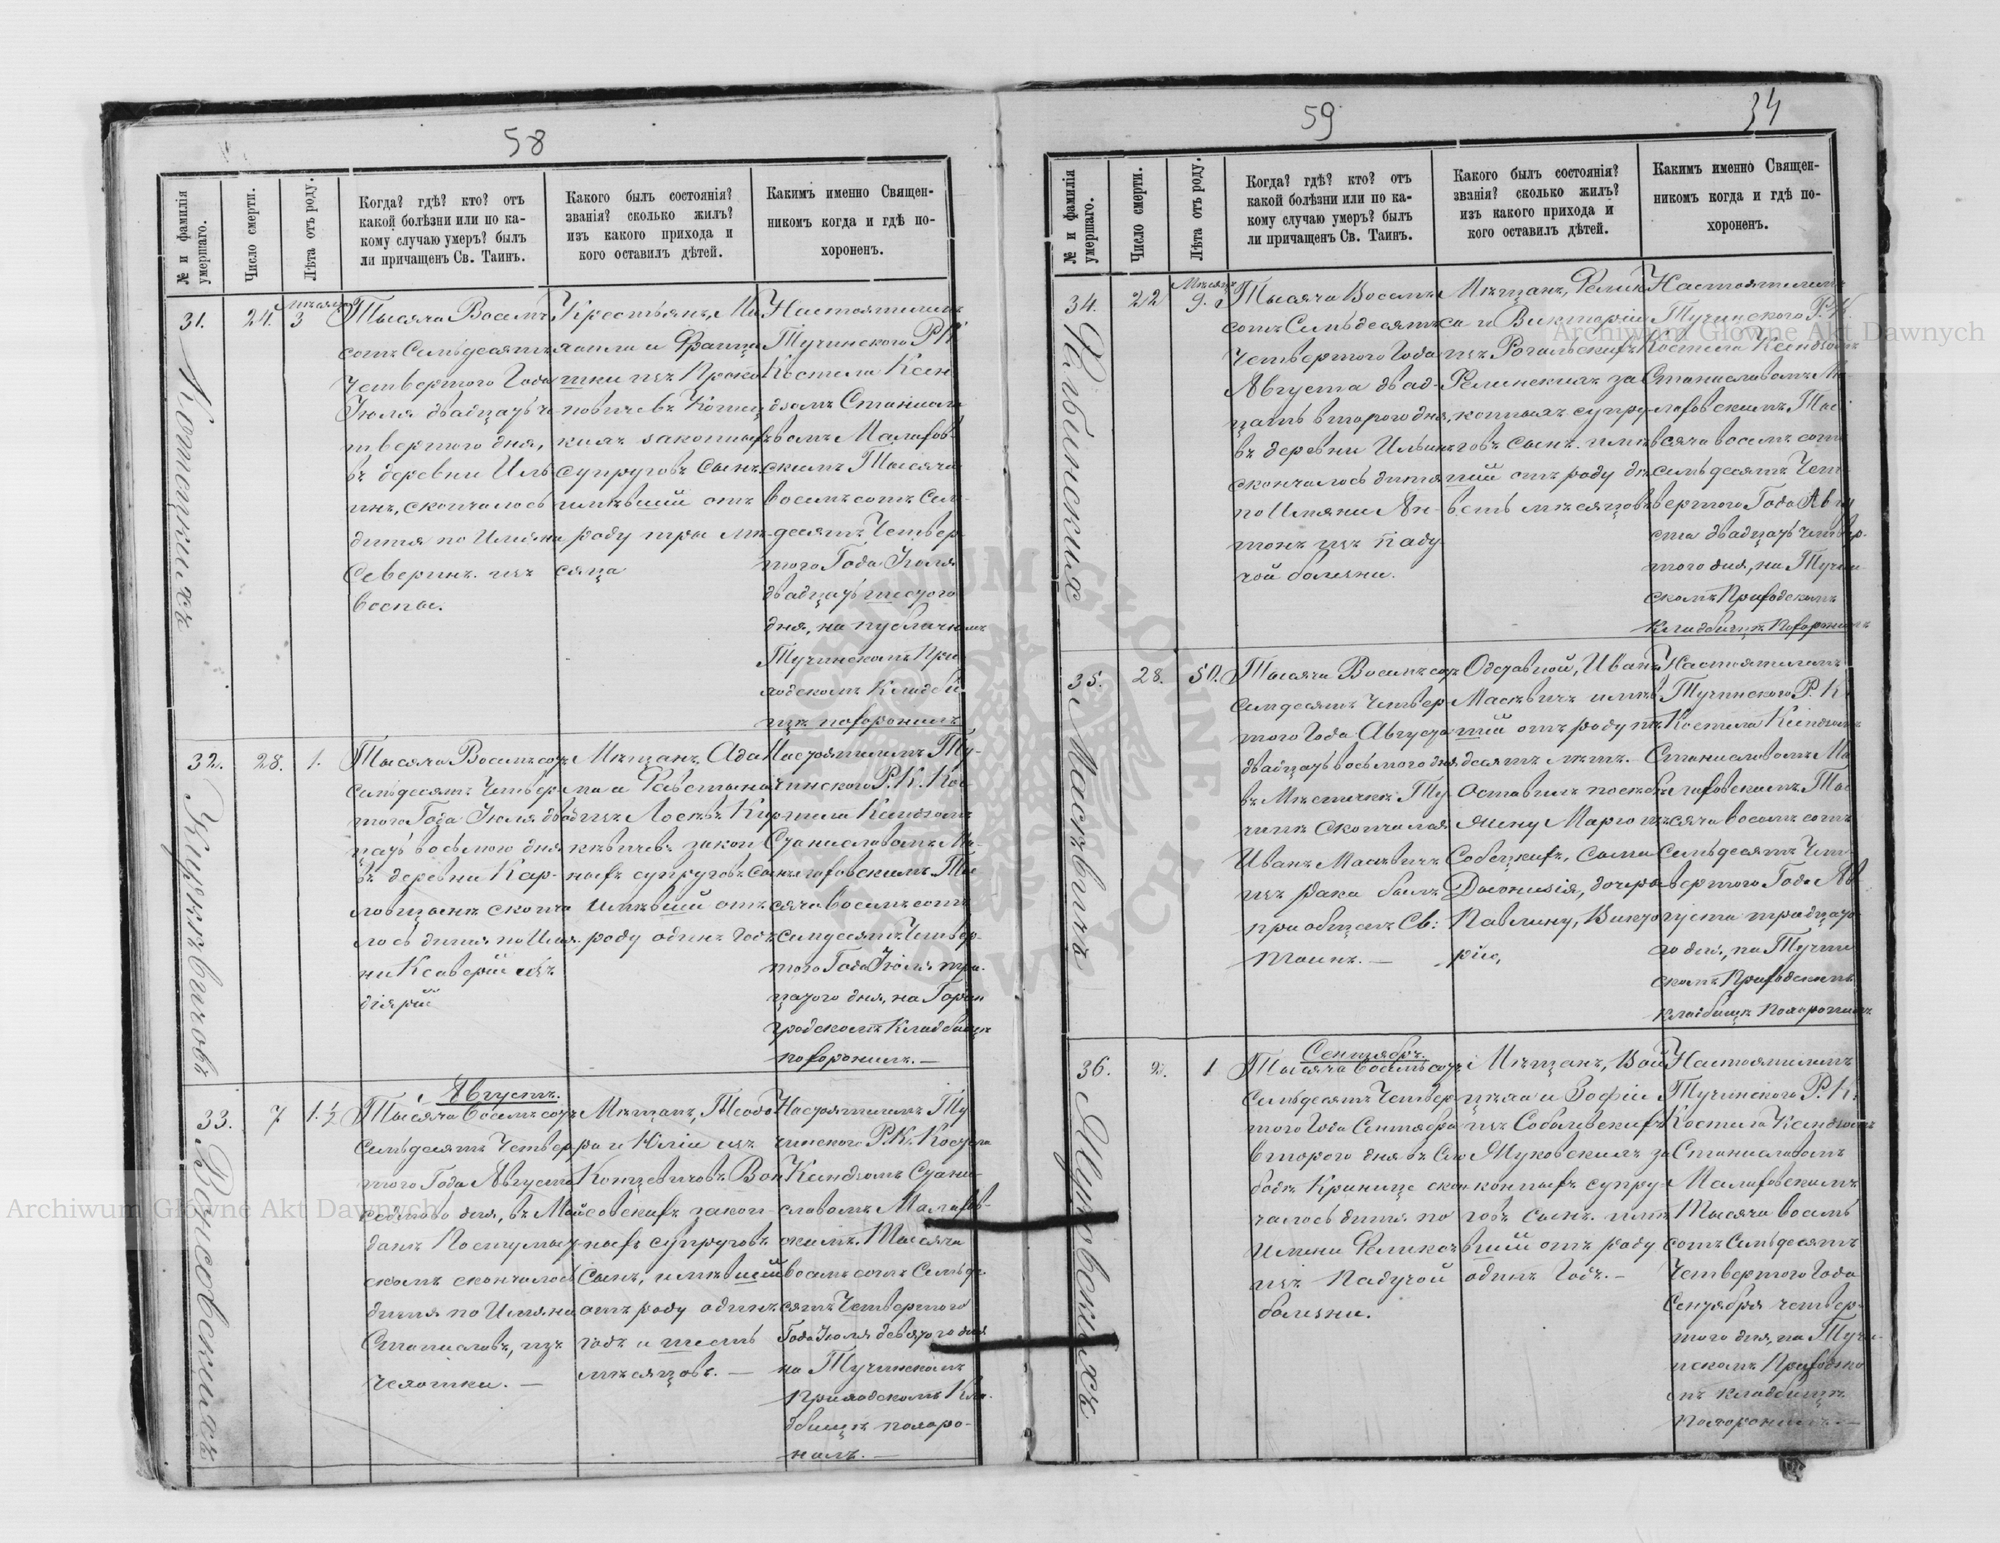 58
№ и фамилія умершаго.
Число смерти.
Лѣта отъ роду.
Когда? гдѣ? кто? отъ
какой болѣзни или по ка-
кому случаю умеръ? былъ
ли причащенъ Св. Таинъ.
Какого былъ состоянія?
званія? сколько жилъ?
изъ какого прихода и
кого оставилъ дѣтей.
Какимъ именно Священ-
никомъ когда и гдѣ по-
хороненъ.
31.
24.
3
Тысяча Восемъ
сотъ Семьдесятъ
Четвертого Года
Іюля двадцать че
твертого дня,
въ деревни Иль
инъ, скончалось
дитя по Имяни
Северинъ. изъ
воспы.
Крестьянъ, Ми
хаила и Франци
шки изъ Проко
повичевъ
законныхъ
супруговъ Сынъ
имѣвшій отъ
роду три мѣ-
сяца
Настоятелемъ
Тучинского Р К
Костела Ксен
дзомъ Станисла
вомъ Малахов-
скимъ Тысяча
восемъ сотъ Сем
десятъ Четвер
того Года Іюля
двадцать шестого
дня, на публичномъ
Тучинскомъ При
ходскомъ Кладби
щѣ похоронилъ
32.
28.
1.
Тысяча Восемъ сотъ
Семьдесятъ Четвер
того Года Іюля двад
цать восьмого дня
въ деревни Кар-
ловщинѣ сконча
лось дитя по Имя-
ни Ксаверій изъ
діярій
Мѣщанъ, Ада
ма и
изъ
законныхъ супруговъ Сынъ
имѣвшій отъ
роду одинъ годъ
Настоятелемъ Ту-
чинского Р. К. Кос-
тела Ксендзомъ
Станиславомъ Ма-
лаховскимъ Ты
сяча восемъ сотъ
Семдесятъ Четвер-
того Года Іюля три
цатого дня, на Горин
градскомъ Кладбищѣ
похоронилъ. —
Августъ.
33.
Вонсовскихъ
7
1. ½
Тысяча восемъ сотъ
Семьдесятъ Четвер
того Года Августа
седмого дня, въ Май
данѣ
скомъ скончалось
дитя по Имяни
Станиславъ, изъ
чахотки. —
Мѣщанъ, Теодо
ра и Юліи изъ
Концевичовъ Вон
совскихъ закон-
ныхъ супруговъ
Сынъ, имѣвшій
отъ роду одинъ
годъ и шесть
мѣсяцовъ. —
Настоятелемъ Ту
чинского Р. К. Костела
Ксендзомъ Стани-
славомъ Малахов-
скимъ. Тысяча
восемъ сотъ Семьде
сятъ Четвертого
Года Іюля девятого дня
на Тучинскомъ
Приходскомъ Кла-
дбищѣ похоро-
нилъ. —
59
34
№ и фамилія умершаго.
Число смерти.
Лѣта отъ роду.
Когда? гдѣ? кто? отъ
какой болѣзни или по ка-
кому случаю умеръ? былъ
ли причащенъ Св. Таинъ.
Какого былъ состоянія?
званія? сколько жилъ?
изъ какого прихода и
кого оставилъ дѣтей.
Какимъ именно Священ-
никомъ когда и гдѣ по-
хороненъ.
34.
22
9.
Тысяча Восемъ
сотъ Семьдесятъ
Четвертого Года
Августа двад-
цать второго дня,
въ деревни Ильинѣ
скончалось дитя
по Имяни Ан-
тонъ изъ паду
чой болезни.
Мѣщанъ, Фелик
са и Викторіи
изъ Рогальскихъ
за
конныхъ супру
говъ Сынъ. имѣв
шій отъ роду де
веть мѣсяцовъ
Настоятелемъ
Тучинского Р. К.
Костела Ксендзомъ
Станиславомъ Ма-
лаховскимъ Ты
сяча восемъ сотъ
семьдесятъ Чет-
вертого Года Авгу
ста двадцать четвер-
того дня, на Тучин
скомъ Приходскомъ
Кладбищѣ Похоронилъ
35.
Маскѣвичъ
28.
50.
Тысяча Восемъ сотъ
Семдесятъ Четвер
того Года Августа
двадцать восьмого дня
въ Мѣстичкѣ Ту-
чинѣ Скончался
Иванъ Маскѣвичъ
изъ рака былъ
приобщенъ Св:
Таинъ. —
Одставной, Иванъ
Маскѣвичъ имѣв
шій отъ роду пять
десятъ лѣтъ. —
Оставилъ после себя
жену Марго изъ
Собецкихъ, сына
Діонизія, дочерей
Павлину, Викто
рію,
Настоятелемъ
Тучинского Р. К.
Костела Ксендзомъ
Станиславомъ Ма
лаховскимъ Ты
сяча восемъ сотъ
Семьдесятъ Чет-
вертого Года Ав
густа тридцато
го дня, на Тучин
скомъ Приходскомъ
Кладбищѣ Похоронилъ
Сентябрь.
36.
Жуковскихъ
2.
1
Тысяча восемъ сотъ
Семьдесятъ Четвер
того Года Сентября
второго дня въ Сло
бодѣ Криницѣ скон
чалось дитя по
Имени Феликсъ
изъ Падучой
болезни.
Мѣщанъ, Вой
цѣха и Зофіи
изъ Соболевскихъ
Жуковскихъ за
конныхъ супру-
говъ Сынъ. имѣ
вшій отъ роду
одинъ Годъ. —
Настоятелемъ
Тучинского Р. К.
Костела Ксендзомъ
Станиславомъ
Малаховскимъ
Тысяча восемь
сотъ Семьдесятъ
Четвертого Года
Сентября четвер-
того дня, на Тучи-
нскомъ Приходско
мъ кладбищѣ
Похоронилъ. —
Archiwum Główne Akt Dawnych
Archiwum Główne Akt Dawnych